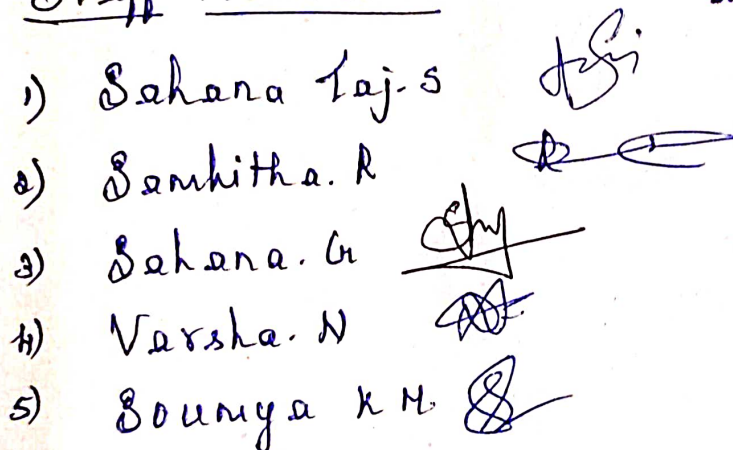 1) Sahana Taj. S
2) Samhitha. R
3) Sahana. G
4) Varsha. N
5) Soumya K M.